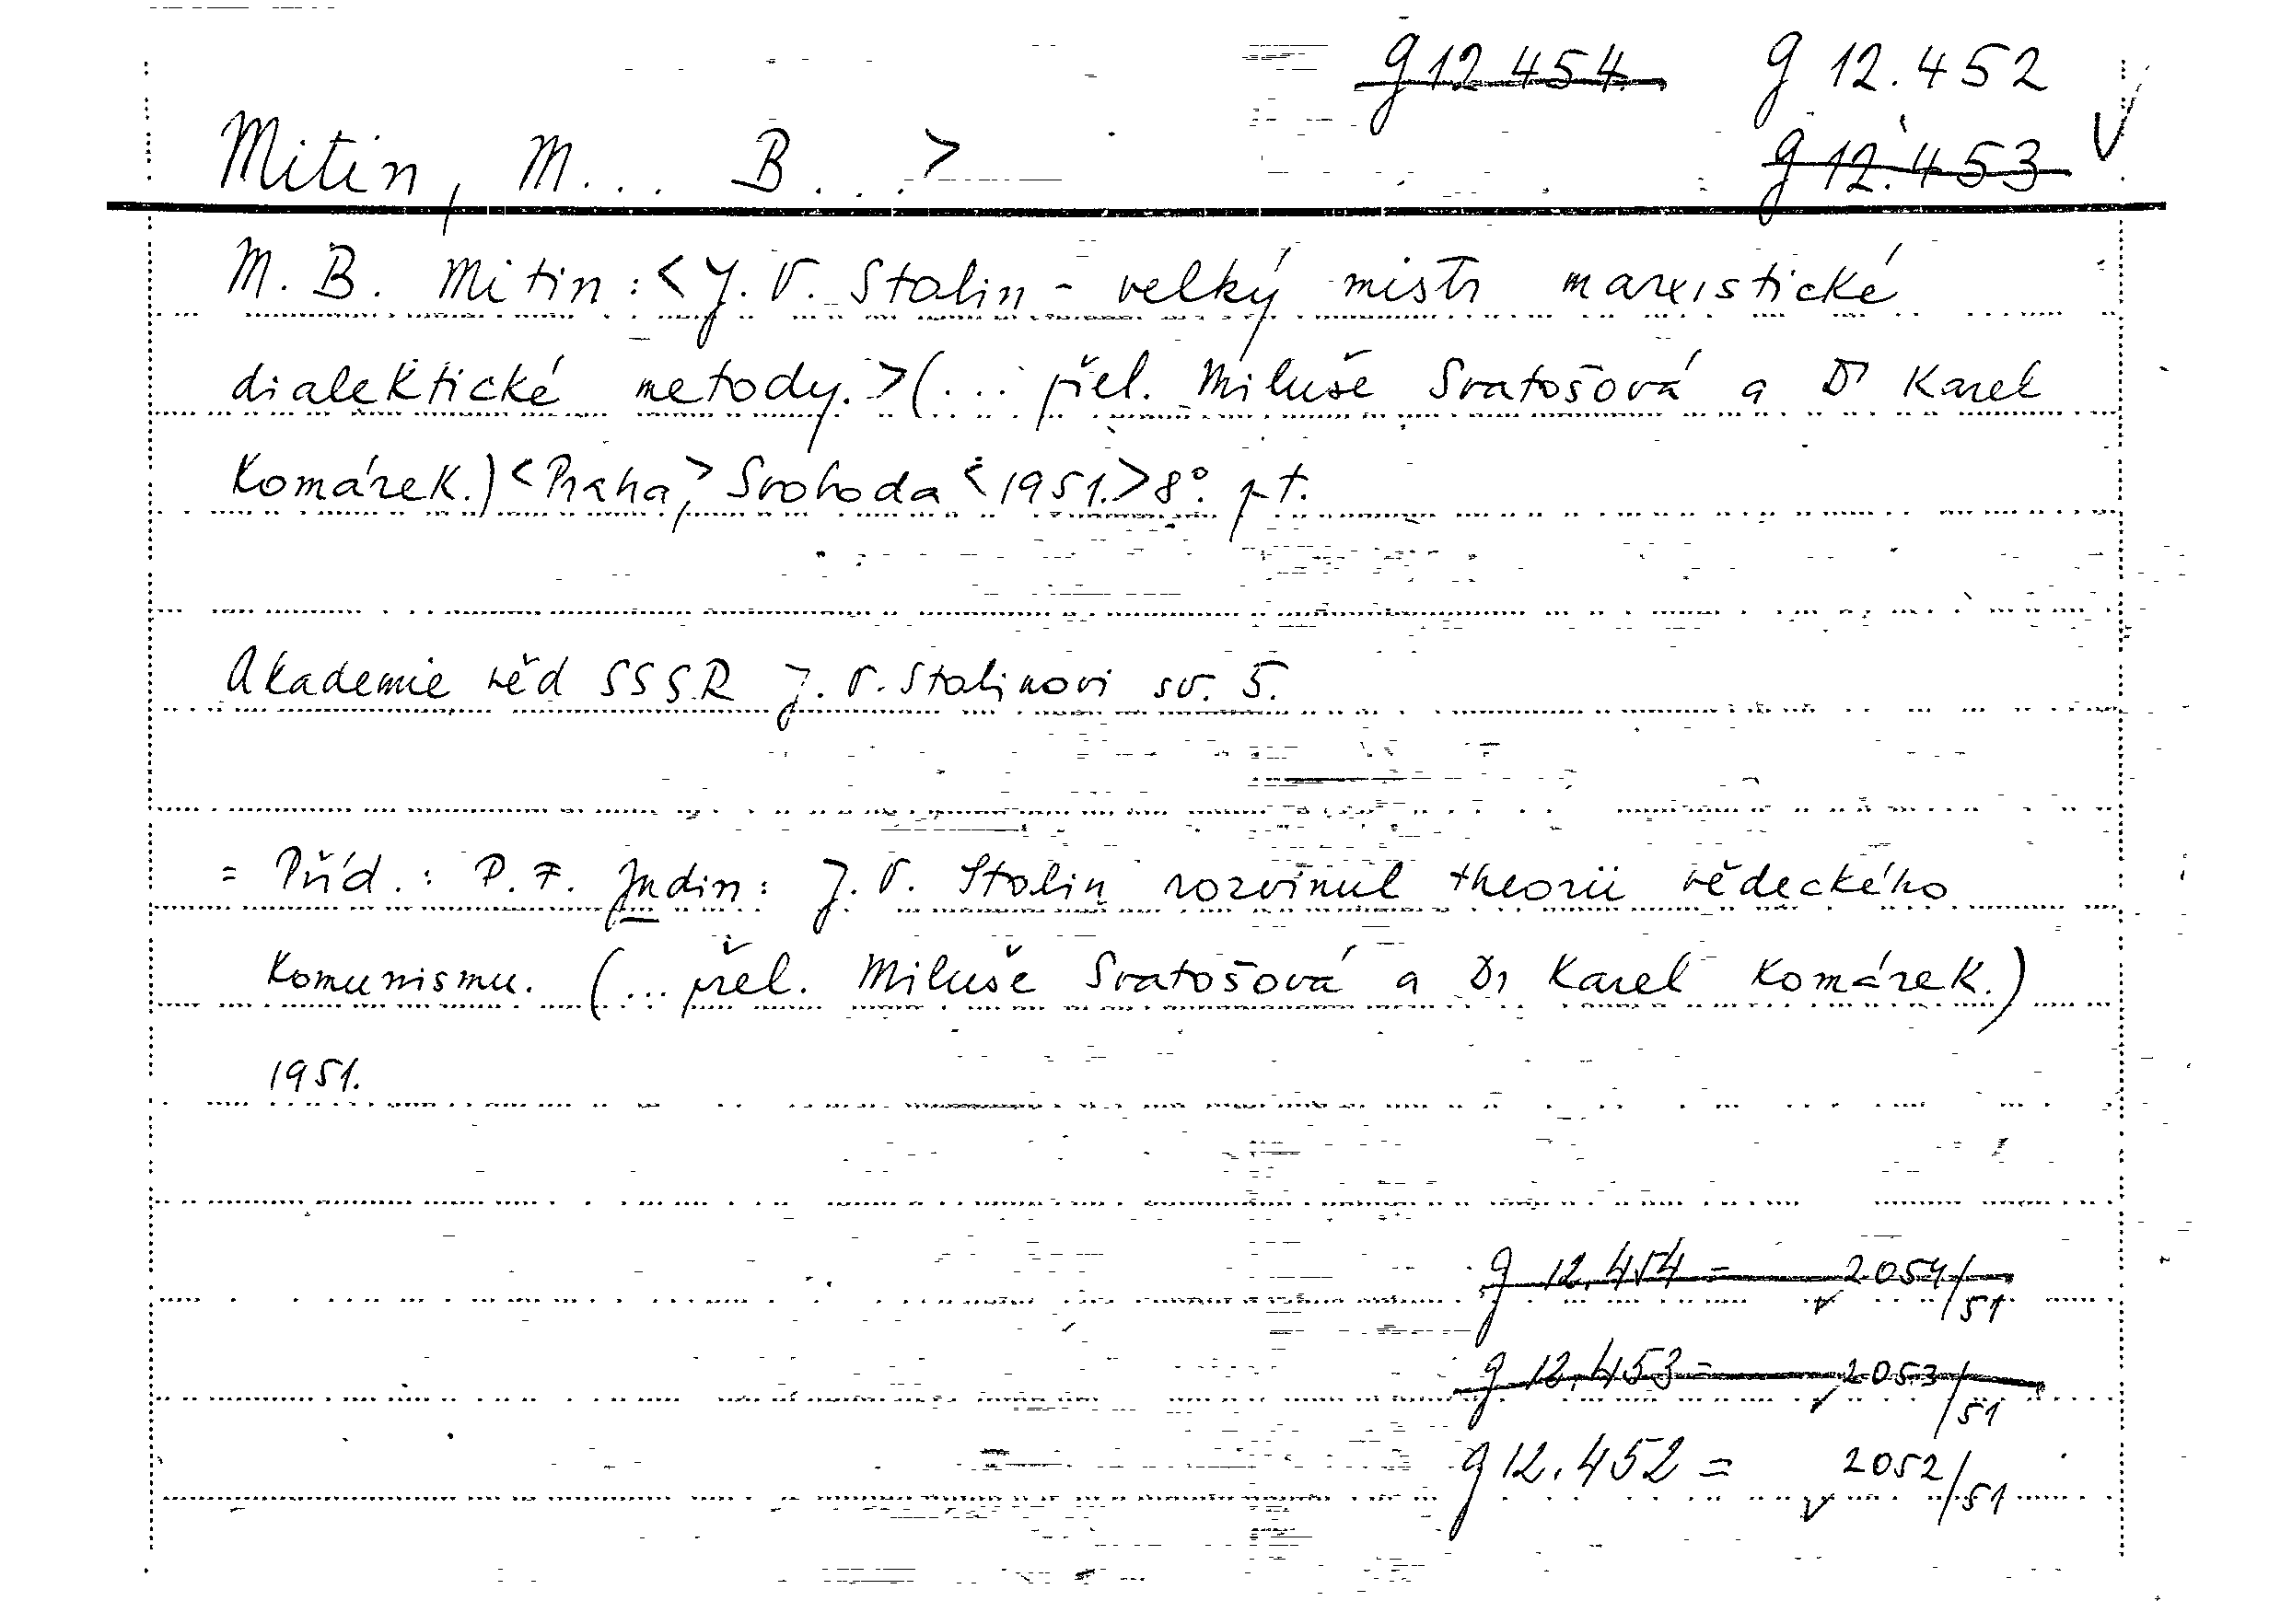 g 12 454 g 12.452
Mitin, M... B...> g 12.453 V
M. B. Mitin: <J. V. Stalin - velký mistr marxistické
dialektické metody.> (... přel. Miluše Svatošová a Dr Karel
Komárek.) <Praha,> Svoboda <1951.> 8°. pt.
Akademie věd SSSR J. V. Stalinovi sv. 5.
= Příd.: P. F. Judin: J. V. Stalin rozvinul theorii vědeckého
komunismu. (... přel. Miluše Svatošová a Dr Karel Komárek.)
1951.
g 12.454 = 2054/51
g 12.453 = 2053/51
g 12.452 = 2052/51